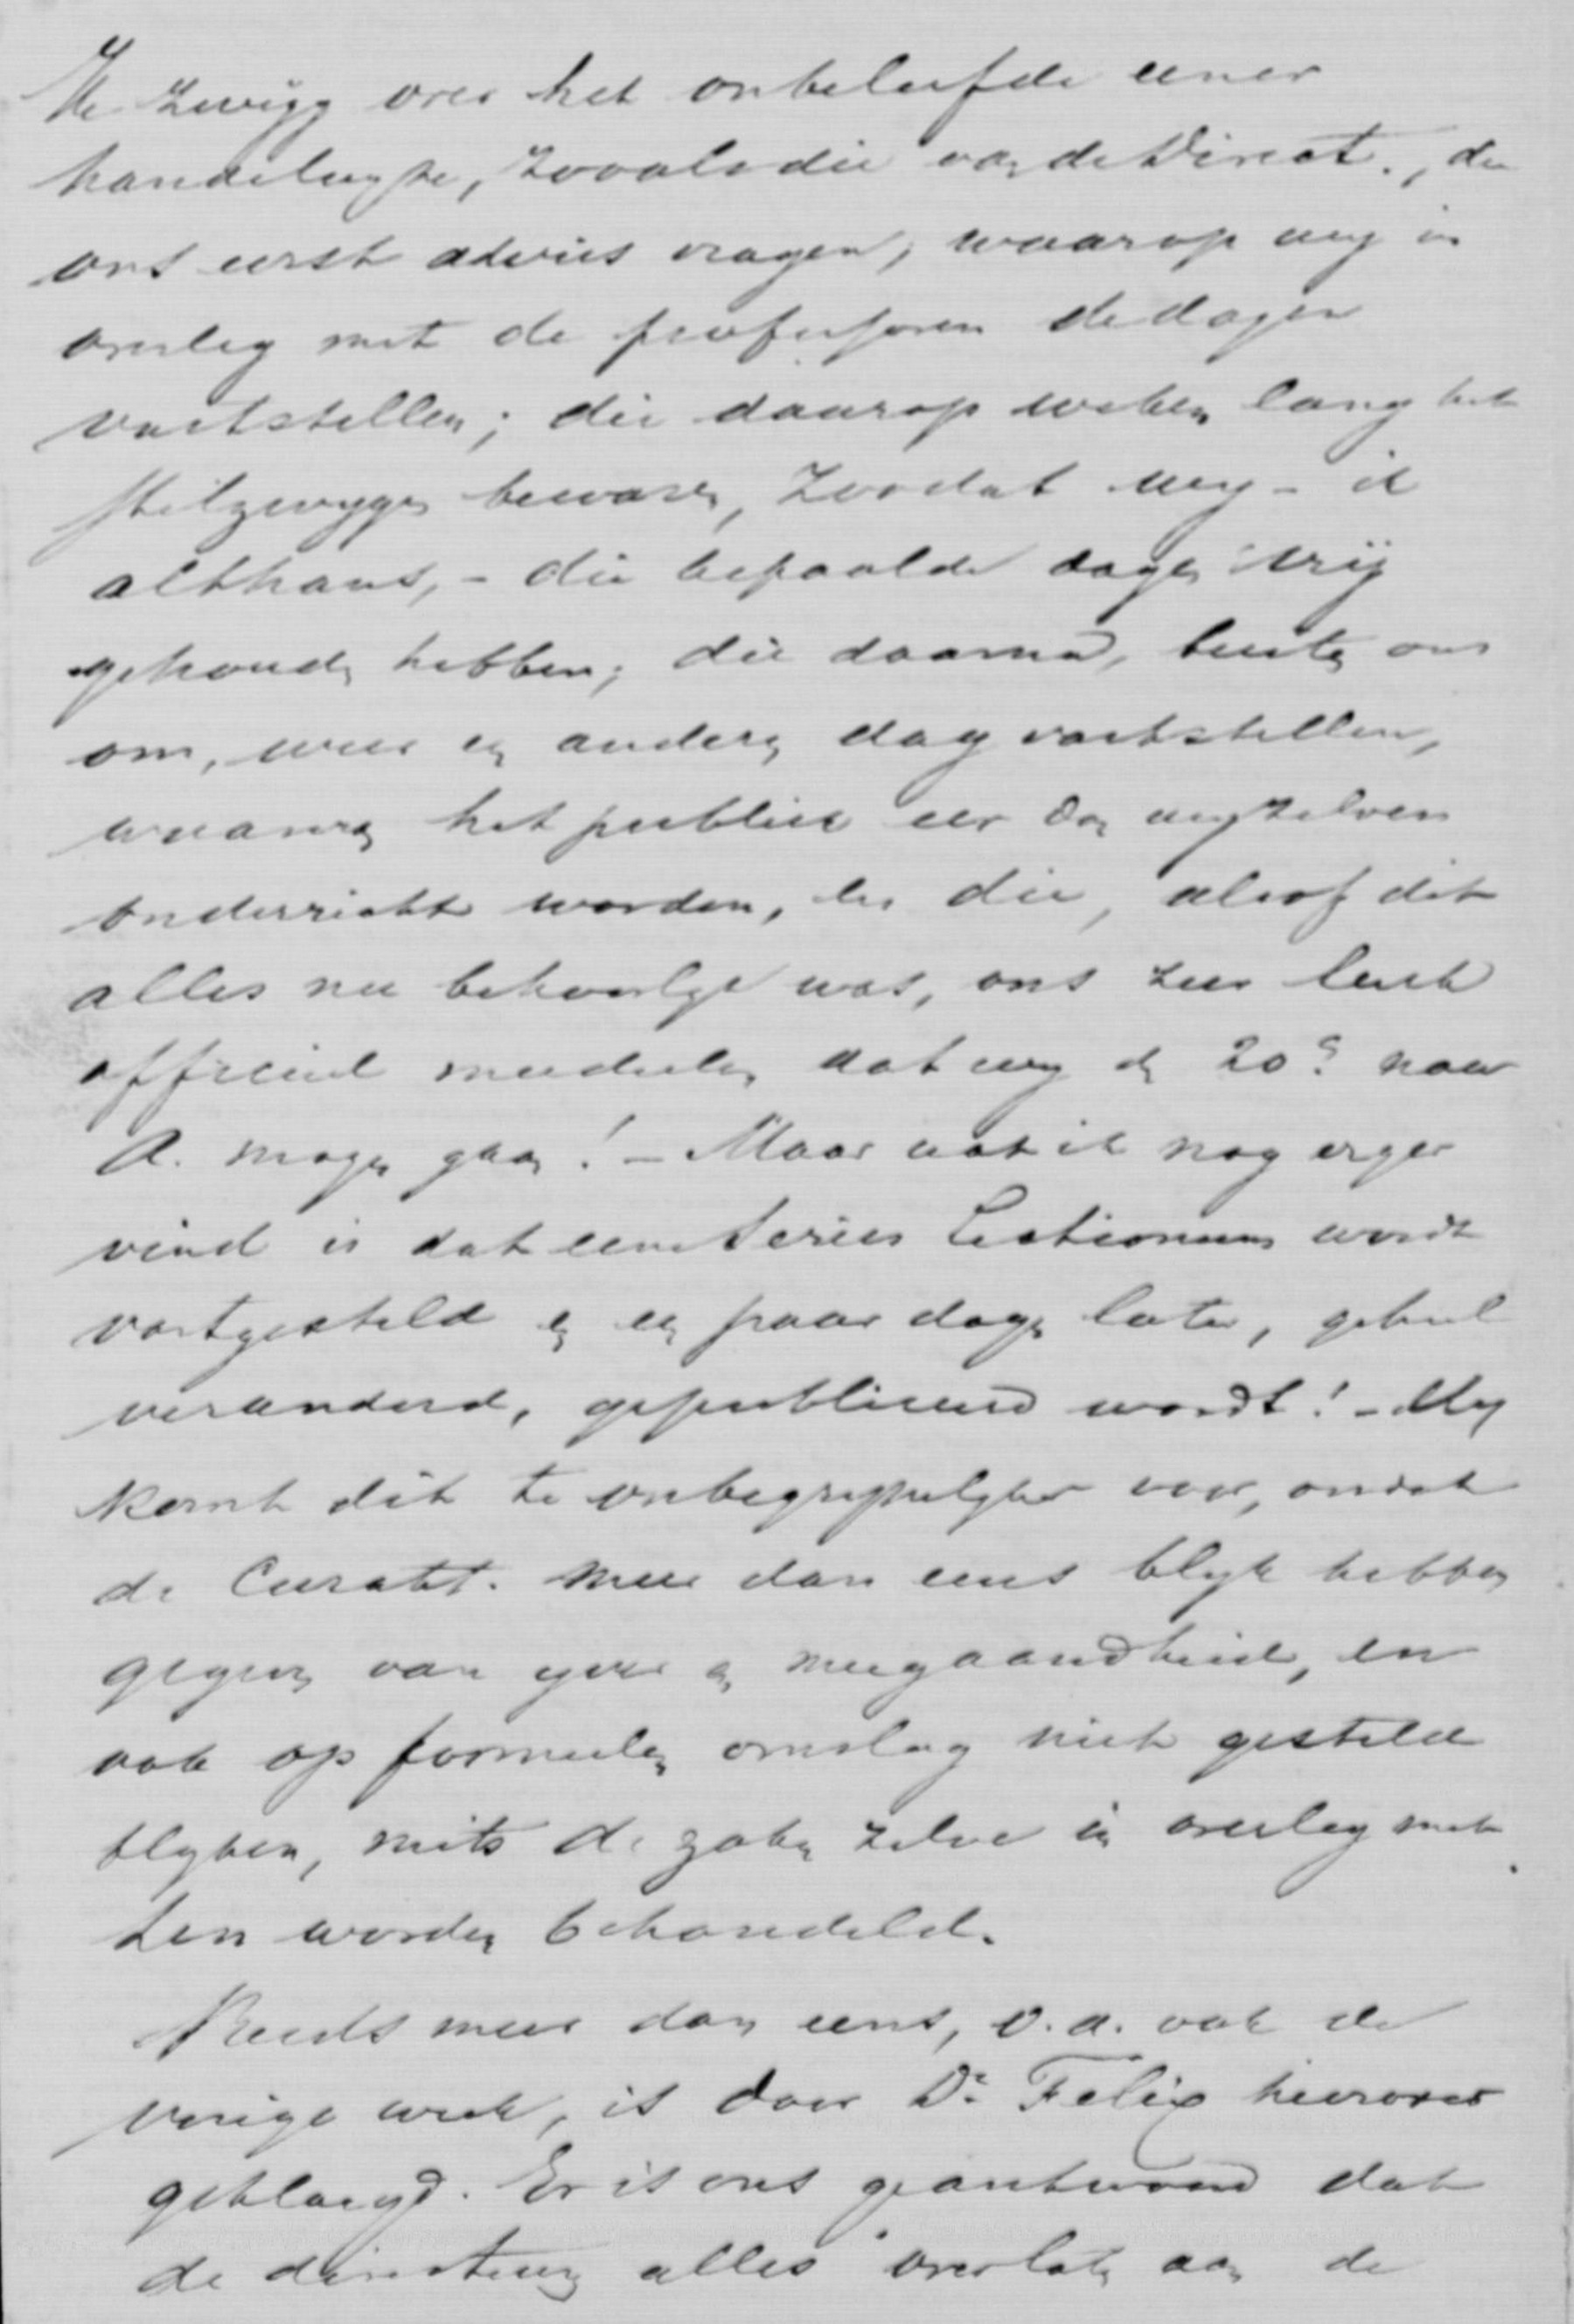 Ik zwijg over het onbeleefde eener
handelwyze, zooals die van de Direct., die
ons eerst advies vragen, waarop wy in
overleg met de professoren de dagen
vaststellen; die daarop weken lang het
stilzwygen bewaren, zoodat wy - ik
althans, - die bepaalde dagen vrij
gehouden hebben; die daarna, buiten ons
om, weer een anderen dag vaststellen,
waarvan het publiek eer dan wyzelven
onderricht worden, en die, alsof dit
alles nu behoorlyk was, ons zeer leuk
officieel mededeelen dat wy den 20e naar
A. mogen gaan! - Maar wat ik nog erger
vind is dat eene Series Lectionum wordt
vastgesteld en een paar dagen later, geheel
veranderd, gepubliceerd wordt! - My
komt dit te onbegrypelyker voor, omdat
de Curatt. meer dan eens blyk hebben
gegeven van yver en meegaandheid, en
ook op formeelen omslag niet gesteld
blyken, mits de zaken zelve in overleg met
hen worden behandeld.
Reeds meer dan eens, o.a. ook de
vorige week, is door Dr. Felix hierover
geklaagd. Er is ons geantwoord dat
de directeuren alles overlaten aan de